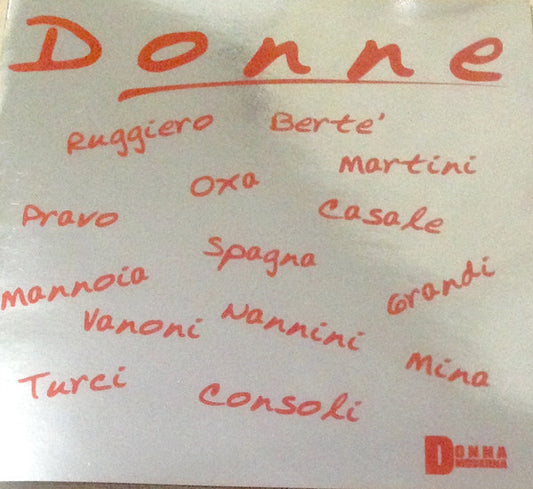 Donne
Ruggiero Berte'
Martini
Oxa
Pravo Casale
Spagna
Mannoia Grandi
Vanoni Nannini
Mina
Turci Consoli
DONNA
MODERNA